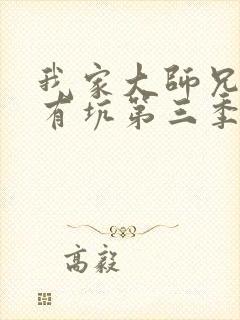 我家大师兄
有坑第三季
高毅